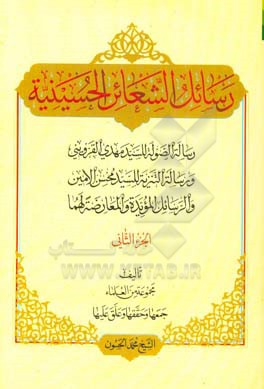 رسائل الشعائر الحسينية
رسالة الصولة للسيد مهدي القزويني
ورسالة التنزيه للسيد محسن الأمين
والرسائل المؤيدة والمعارضة لهما
الجزء الثاني
تأليف
مجموعة من العلماء
جمعها وحققها وعلق عليها
الشيخ محمد الحسون
www.KETAB.ir